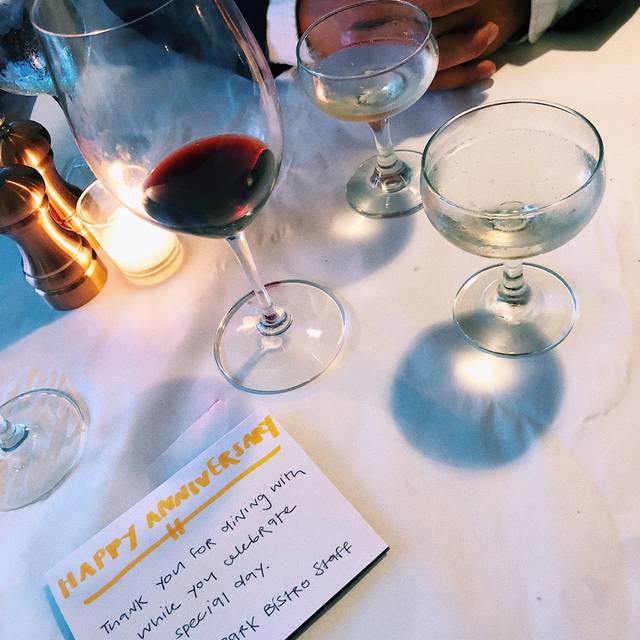 HAPPY ANNIVERSARY
Thank you for dining with
while you celebrate
special day.
Park Bistro Staff